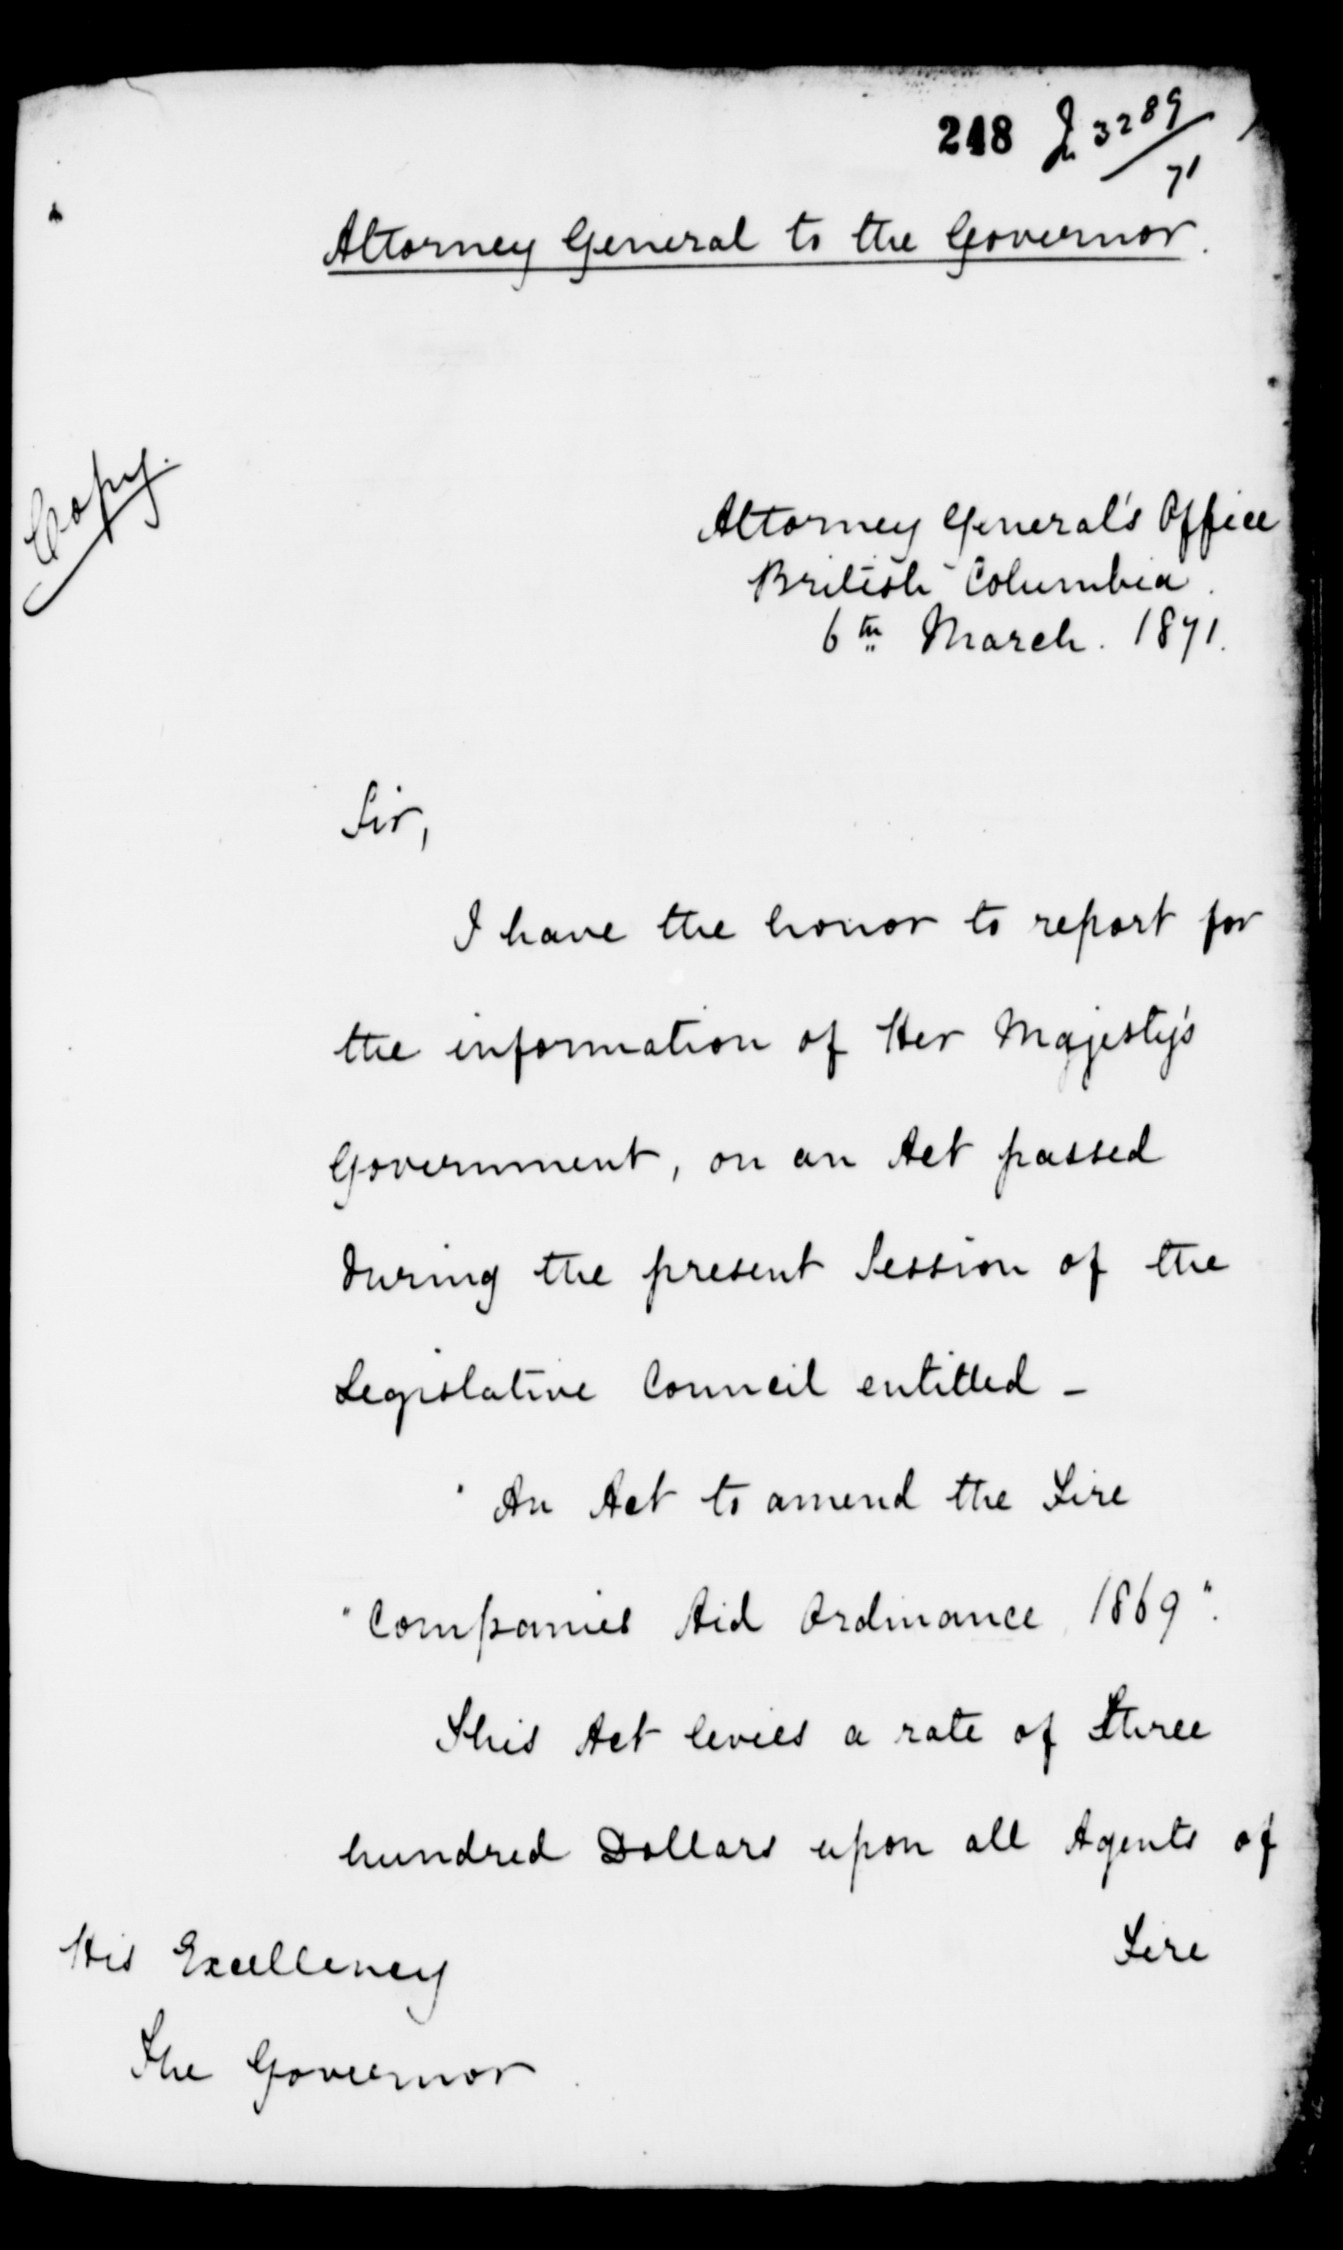 248 In 3289/71
Attorney General to the Governor.
Copy.
Attorney General's Office
British Columbia.
6th March. 1871.
Sir,
I have the honor to report for
the information of Her Majesty's
Government, on an Act passed
during the present Session of the
Legislative Council entitled -
" An Act to amend the Fire
"Companies Aid Ordinance, 1869".
This Act levies a rate of three
hundred Dollars upon all Agents of
Fire
His Excellency
The Governor